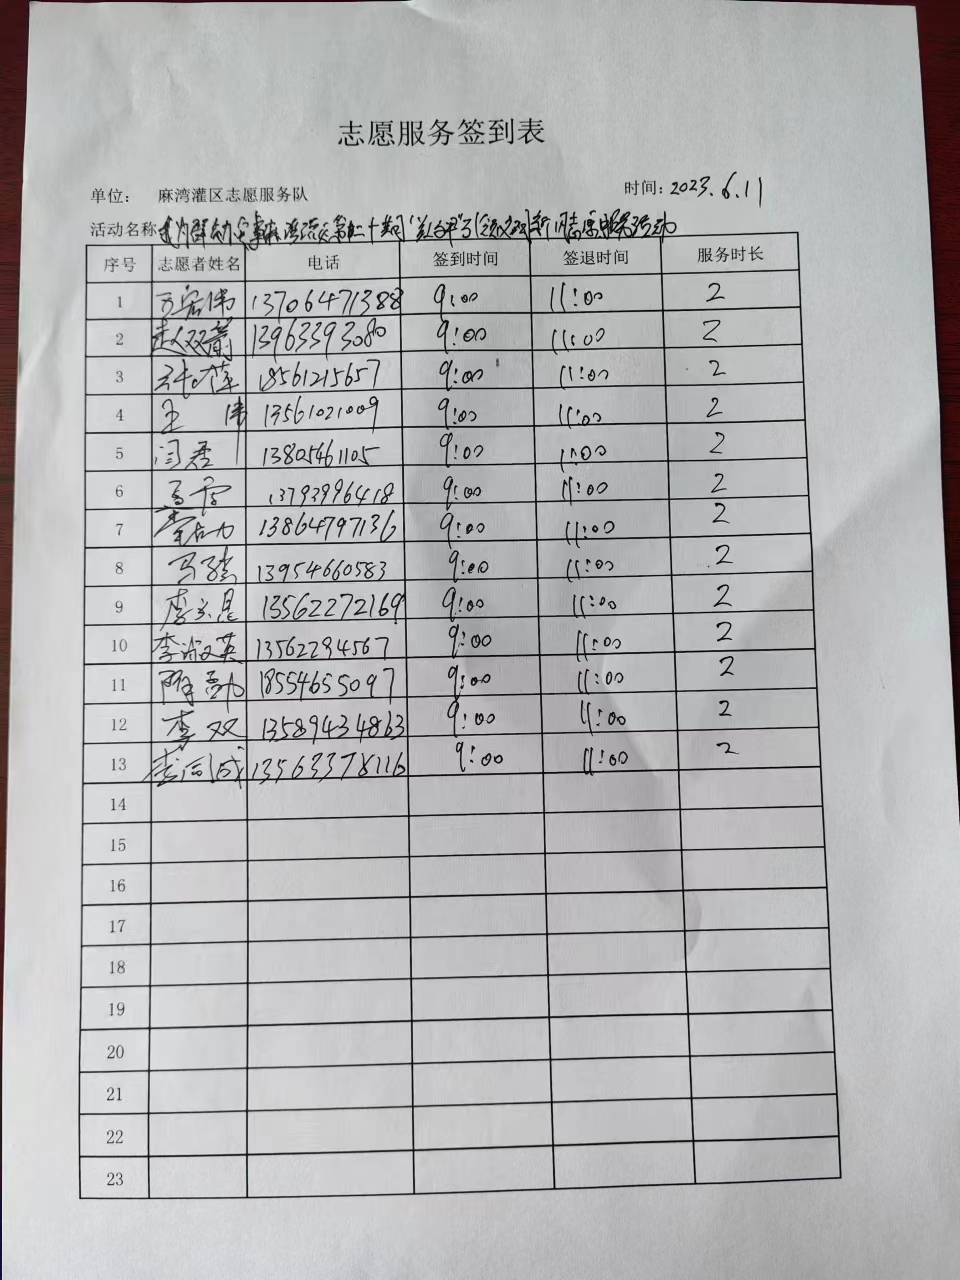 志愿服务签到表
单位： 麻湾灌区志愿服务队 时间：2023.6.11
活动名称
序号 志愿者姓名 电话 签到时间 签退时间 服务时长
1 伟 13706471388 9:00 11:00 2
2 赵双 13963393080 9:00 11:00 2
3 萍 18561215657 9:00 11:00 2
4 王伟 13561021009 9:00 11:00 2
5 闫磊 13805461105 9:00 11:00 2
6 13793996418 9:00 11:00 2
7 13864797136 9:00 11:00 2
8 马 13954660583 9:00 11:00 2
9 李 13562272169 9:00 11:00 2
10 李淑英 13562294567 9:00 11:00 2
11 18554655097 9:00 11:00 2
12 李双 13589434863 9:00 11:00 2
13 李成 13563378116 9:00 11:00 2
14
15
16
17
18
19
20
21
22
23